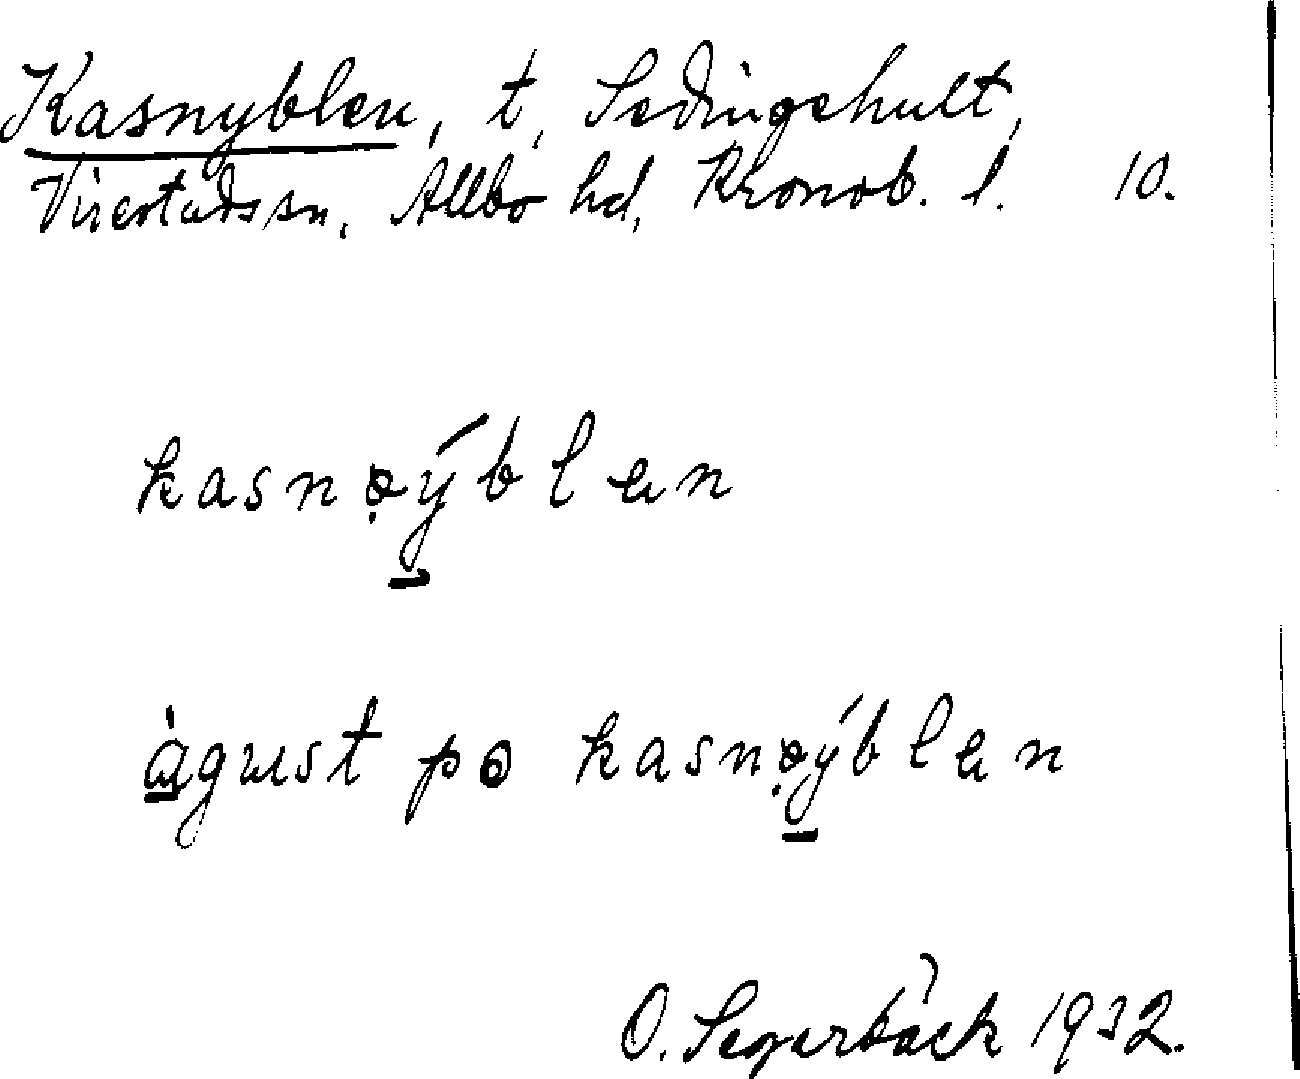 Kasnyblen, t, Sedingehult,
Virestads sn, Allbo hd, Kronob. l. 10.
kasnəýblen
àgust po kasnəýblen
O. Segerbäck 1932.